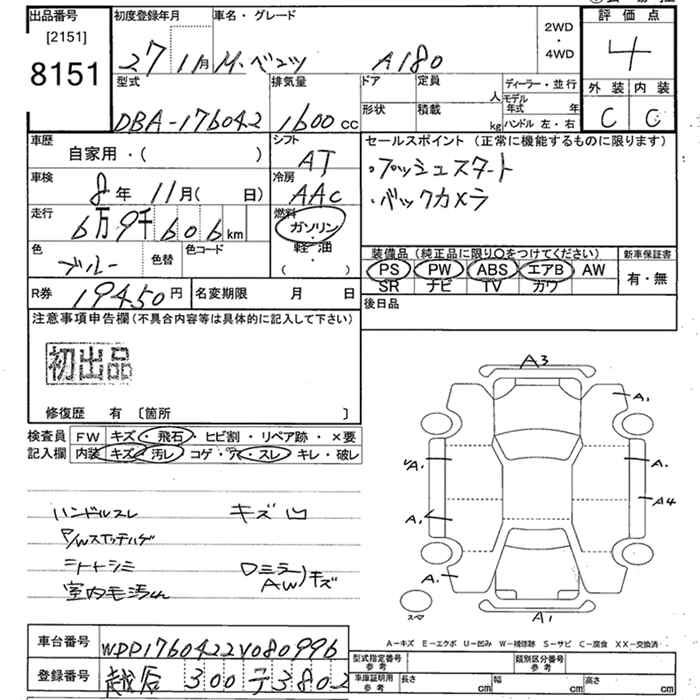 出品番号 初度登録年月 車名・グレード 2WD・4WD 評価点
[2151]
8151 27 11月 M.ベンツ A180 4
型式 排気量 ドア 定員 人 ディーラー・並行 外装 内装
DBA-176042 1600cc 形状 積載 kg モデル年式 年 ハンドル 左・右 C C
車歴 自家用・( ) シフト AT セールスポイント(正常に機能するものに限ります)
車検 8年 11月( 日) 冷房 AAC ・プッシュスタート
走行 6万9千606km 燃料 ガソリン・軽油・( ) ・バックカメラ
色 ブルー 色替 色コード 装備品(純正品に限り○をつけてください) 新車保証書
PS PW ABS エアB AW 有・無
SR ナビ TV カワ
R券 19450円 名変期限 月 日 後日品
注意事項申告欄(不具合内容等は具体的に記入して下さい)
初出品
修復歴 有 〔箇所 〕
検査員 FW キズ・飛石・ヒビ割・リペア跡・×要
記入欄 内装 キズ・汚レ コゲ・穴・スレ・キレ・破レ
ハンドルスレ キズ凹
P/Wスイッチハゲ
シートシミ Dミラー
室内毛汚れ AW キズ
A3
A1
A1
A1
A1
A4
A1
A1
A1
スマ
A-キズ E-エクボ U-凹み W-補修跡 S-サビ C-腐食 XX-交換済
車台番号 WDD1760422V080996 型式指定番号 参考 類別区分番号 参考
登録番号 越谷 300 3802 車庫証明用 参考 長さ cm 幅 cm 高さ cm